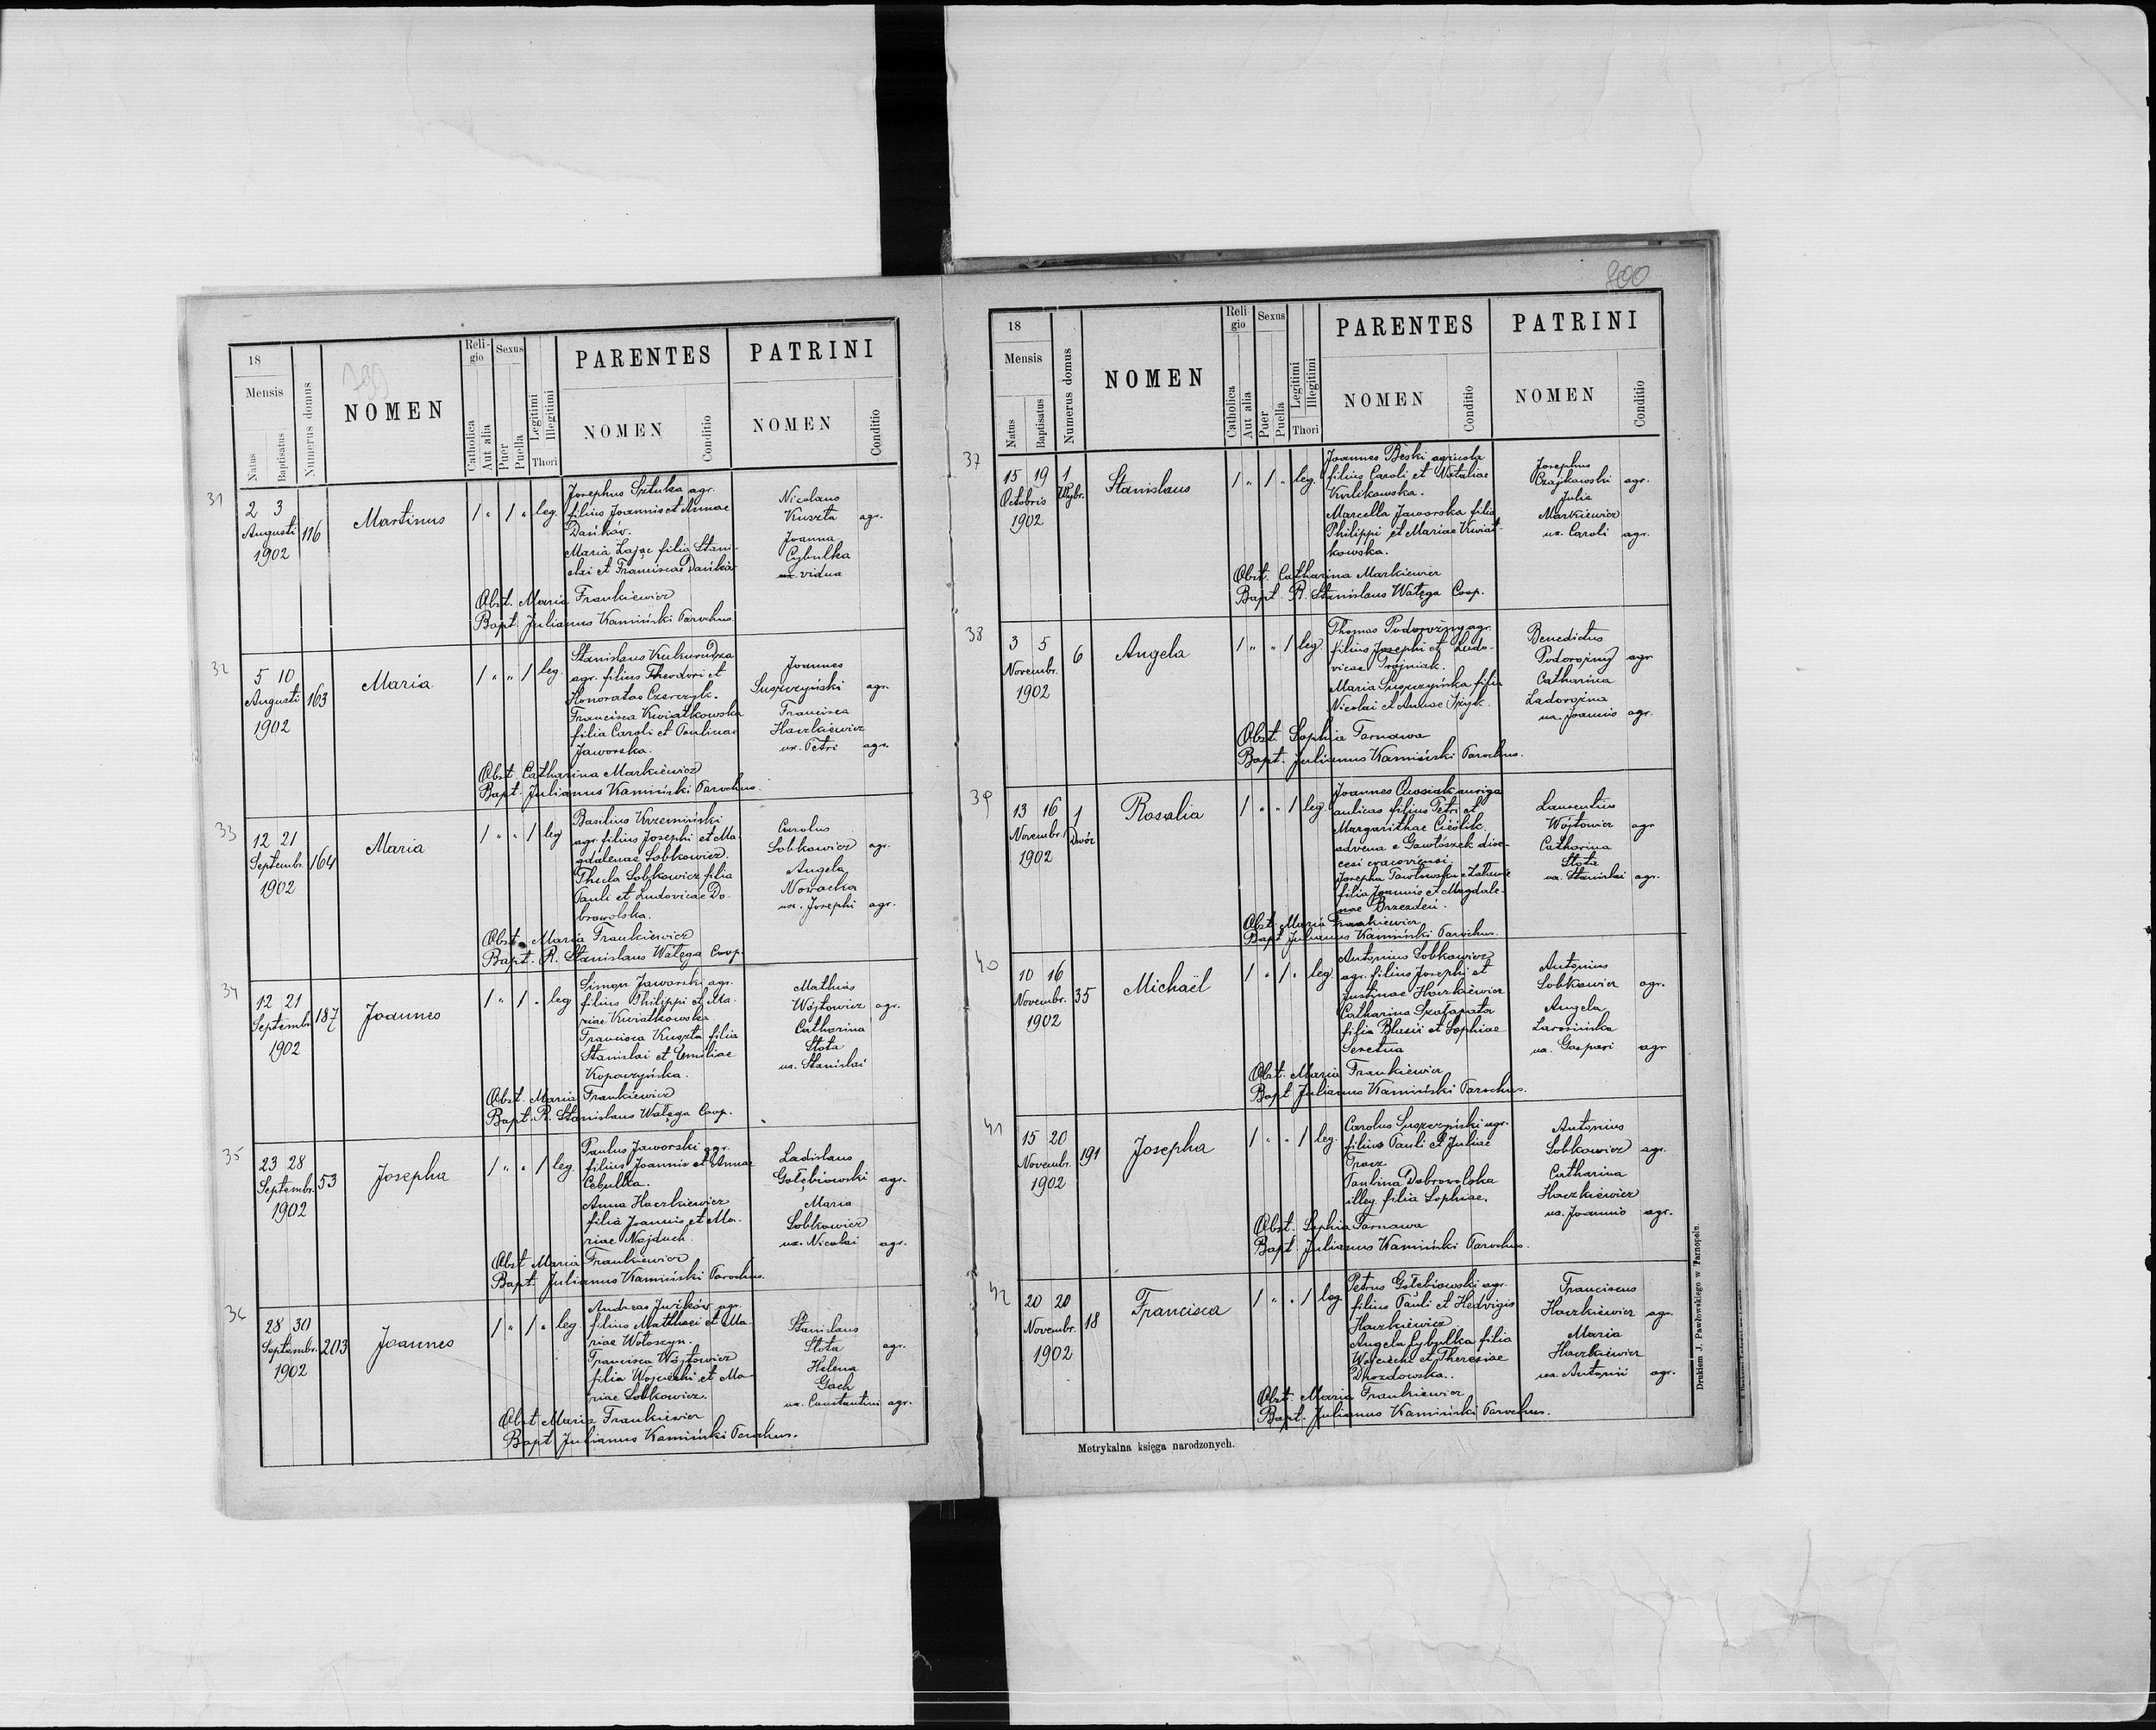 799
18
Mensis
Natus
Baptisatus
Numerus domus
NOMEN
Reli-
gio
Catholica
Aut alia
Sexus
Puer
Puella
Legitimi
Illegitimi
Thori
PARENTES
NOMEN
Conditio
PATRINI
NOMEN
Conditio
31
2 3
Augusti
1902
116
Martinus
1 " 1 " leg.
Josephus Sztuka agr.
filius Joannis et Annae
Dańków.
Maria Zając filia Stani-
slai et Franciscae Dańków
Nicolaus
Kuszta agr.
Joanna
Cybulka
ux. vidua
Obst. Maria Frankiewicz
Bapt. Julianus Kamiński Parochus.
32
5 10
Augusti
1902
163
Maria
1 " " 1 leg.
Stanislaus Kukurudza
agr. filius Theodori et
Honoratae Czerczyk.
Francisca Kwiatkowska
filia Caroli et Paulinae
Jaworska.
Joannes
Suszczyński agr.
Francisca
Haczkiewicz
ux. Petri agr.
Obst. Catharina Markiewicz
Bapt. Julianus Kamiński Parochus.
33
12 21
Septembr.
1902
164
Maria
1 " " 1 leg
Basilius Krzemiński
agr. filius Josephi et Ma-
gdalenae Sobkowicz.
Thecla Sobkowicz filia
Pauli et Ludovicae Do-
browolska.
Carolus
Sobkowicz agr.
Angela
Nowacka
ux. Josephi agr.
Obst. Maria Frankiewicz
Bapt. R. Stanislaus Wałęga Coop.
34
12 21
Septembr.
1902
187
Joannes
1 " 1 " leg
Simon Jaworski agr.
filius Philippi et Ma-
riae Kwiatkowska.
Francisca Kuszta filia
Stanislai et Emiliae
Kopaczyńska.
Mathias
Wójtowicz agr.
Catharina
Słota
ux. Stanislai
Obst. Maria Frankiewicz
Bapt. R. Stanislaus Wałęga Coop.
35
23 28
Septembr.
1902
53
Josepha
1 " " 1 leg.
Paulus Jaworski agr.
filius Joannis et Annae
Cebulka.
Anna Haczkiewicz
filia Joannis et Ma-
riae Najduch.
Ladislaus
Gołębiowski agr.
Maria
Sobkowicz
ux. Nicolai agr.
Obst. Maria Frankiewicz
Bapt. Julianus Kamiński Parochus.
36
28 30
Septembr.
1902
203
Joannes
1 " 1 " leg.
Andreas Juśków agr.
filius Matthaei et Ma-
riae Wołoszyn.
Francisca Wójtowicz
filia Wojciechi et Ma-
riae Sobkowicz.
Stanislaus
Słota agr.
Helena
Gach
ux. Constantini agr.
Obst. Maria Frankiewicz
Bapt. Julianus Kamiński Parochus.
800
18
Mensis
Natus
Baptisatus
Numerus domus
NOMEN
Reli-
gio
Catholica
Aut alia
Sexus
Puer
Puella
Legitimi
Illegitimi
Thori
PARENTES
NOMEN
Conditio
PATRINI
NOMEN
Conditio
37
15 19
Octobris
1902
1
Wybr.
Stanislaus
1 " 1 " leg.
Joannes Beski agricola
filius Caroli et Nataliae
Kulikowska.
Marcella Jaworska filia
Philippi et Mariae Kwiat-
kowska.
Josephus
Czajkowski agr.
Julia
Markiewicz
ux. Caroli agr.
Obst. Catharina Markiewicz
Bapt. R. Stanislaus Wałęga Coop.
38
3 5
Novembr.
1902
6
Angela
1 " " 1 leg.
Thomas Podorożny agr.
filius Josephi et Ludo-
vicae Trojniak.
Maria Suszczyńska filia
Nicolai et Annae Iżyk.
Benedictus
Podorożny agr
Catharina
Zadorożna
ux. Joannis agr.
Obst. Sophia Tarnawa
Bapt. Julianus Kamiński Parochus.
39
13 16
Novembr.
1902
1
Dwór
Rosalia
1 " " 1 leg.
Joannes Owsiak auriga
aulicus filius Petri et
Margarithae Cieślik
advena e Gawłószek dioe-
cesi cracoviensi.
Josepha
filia Joannis et Magdale-
nae Brzezdeń.
Laurentius
Wójtowicz agr
Catharina
Słota
ux. Stanislai agr.
Obst. Maria Frankiewicz
Bapt. Julianus Kamiński Parochus.
40
10 16
Novembr.
1902
35
Michaël
1 " 1 " leg.
Antonius Sobkowicz
agr. filius Josephi et
Justinae Haczkiewicz
Catharina Szafapator
filia Blasii et Sophiae
Seretna
Antonius
Sobkowicz agr.
Angela
Zarosińska
ux. Gaspari agr
Obst. Maria Frankiewicz
Bapt. Julianus Kamiński Parochus.
41
15 20
Novembr.
1902
191
Josepha
1 " " 1 leg.
Carolus Suszczyński agr.
filius Pauli et Juliae
Tracz
Paulina Dobrowolska
illeg. filia Sophiae.
Antonius
Sobkowicz agr.
Catharina
Haczkiewicz
ux. Joannis agr.
Obst. Sophia Tarnawa
Bapt. Julianus Kamiński Parochus.
42
20 20
Novembr.
1902
18
Francisca
1 " " 1 leg.
Petrus Gołębiowski agr.
filius Pauli et Hedvigis
Haczkiewicz
Angela Cybulka filia
Wojciechi et Theresiae
Drozdowska.
Franciscus
Haczkiewicz agr.
Maria
Haczkiewicz
ux. Antonii agr.
Obst. Maria Frankiewicz
Bapt. Julianus Kamiński Parochus.
Metrykalna księga narodzonych.
Drukiem J. Pawłowskiego w Tarnopolu.